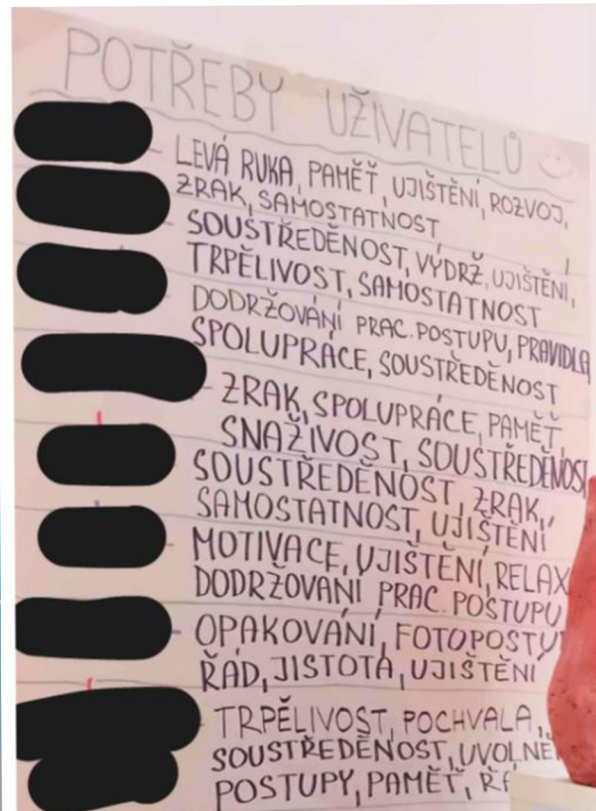 POTŘEBY UŽIVATELŮ
LEVÁ RUKA, PAMĚŤ, UJIŠTĚNÍ, ROZVOJ,
ZRAK, SAMOSTATNOST
SOUSTŘEDĚNOST, VÝDRŽ, UJIŠTĚNÍ,
TRPĚLIVOST, SAMOSTATNOST
DODRŽOVÁNÍ PRAC. POSTUPU, PRAVIDLA
SPOLUPRÁCE, SOUSTŘEDĚNOST
ZRAK, SPOLUPRÁCE, PAMĚŤ,
SNAŽIVOST, SOUSTŘEDĚNOST
SOUSTŘEDĚNOST, ZRAK,
SAMOSTATNOST, UJIŠTĚNÍ
MOTIVACE, UJIŠTĚNÍ, RELAX
DODRŽOVANÍ PRAC. POSTUPU
OPAKOVÁNÍ, FOTOPOSTU
ŘÁD, JISTOTA, UJIŠTĚNÍ
TRPĚLIVOST, POCHVALA,
SOUSTŘEDĚNOST, UVOLNĚ
POSTUPY, PAMĚŤ,